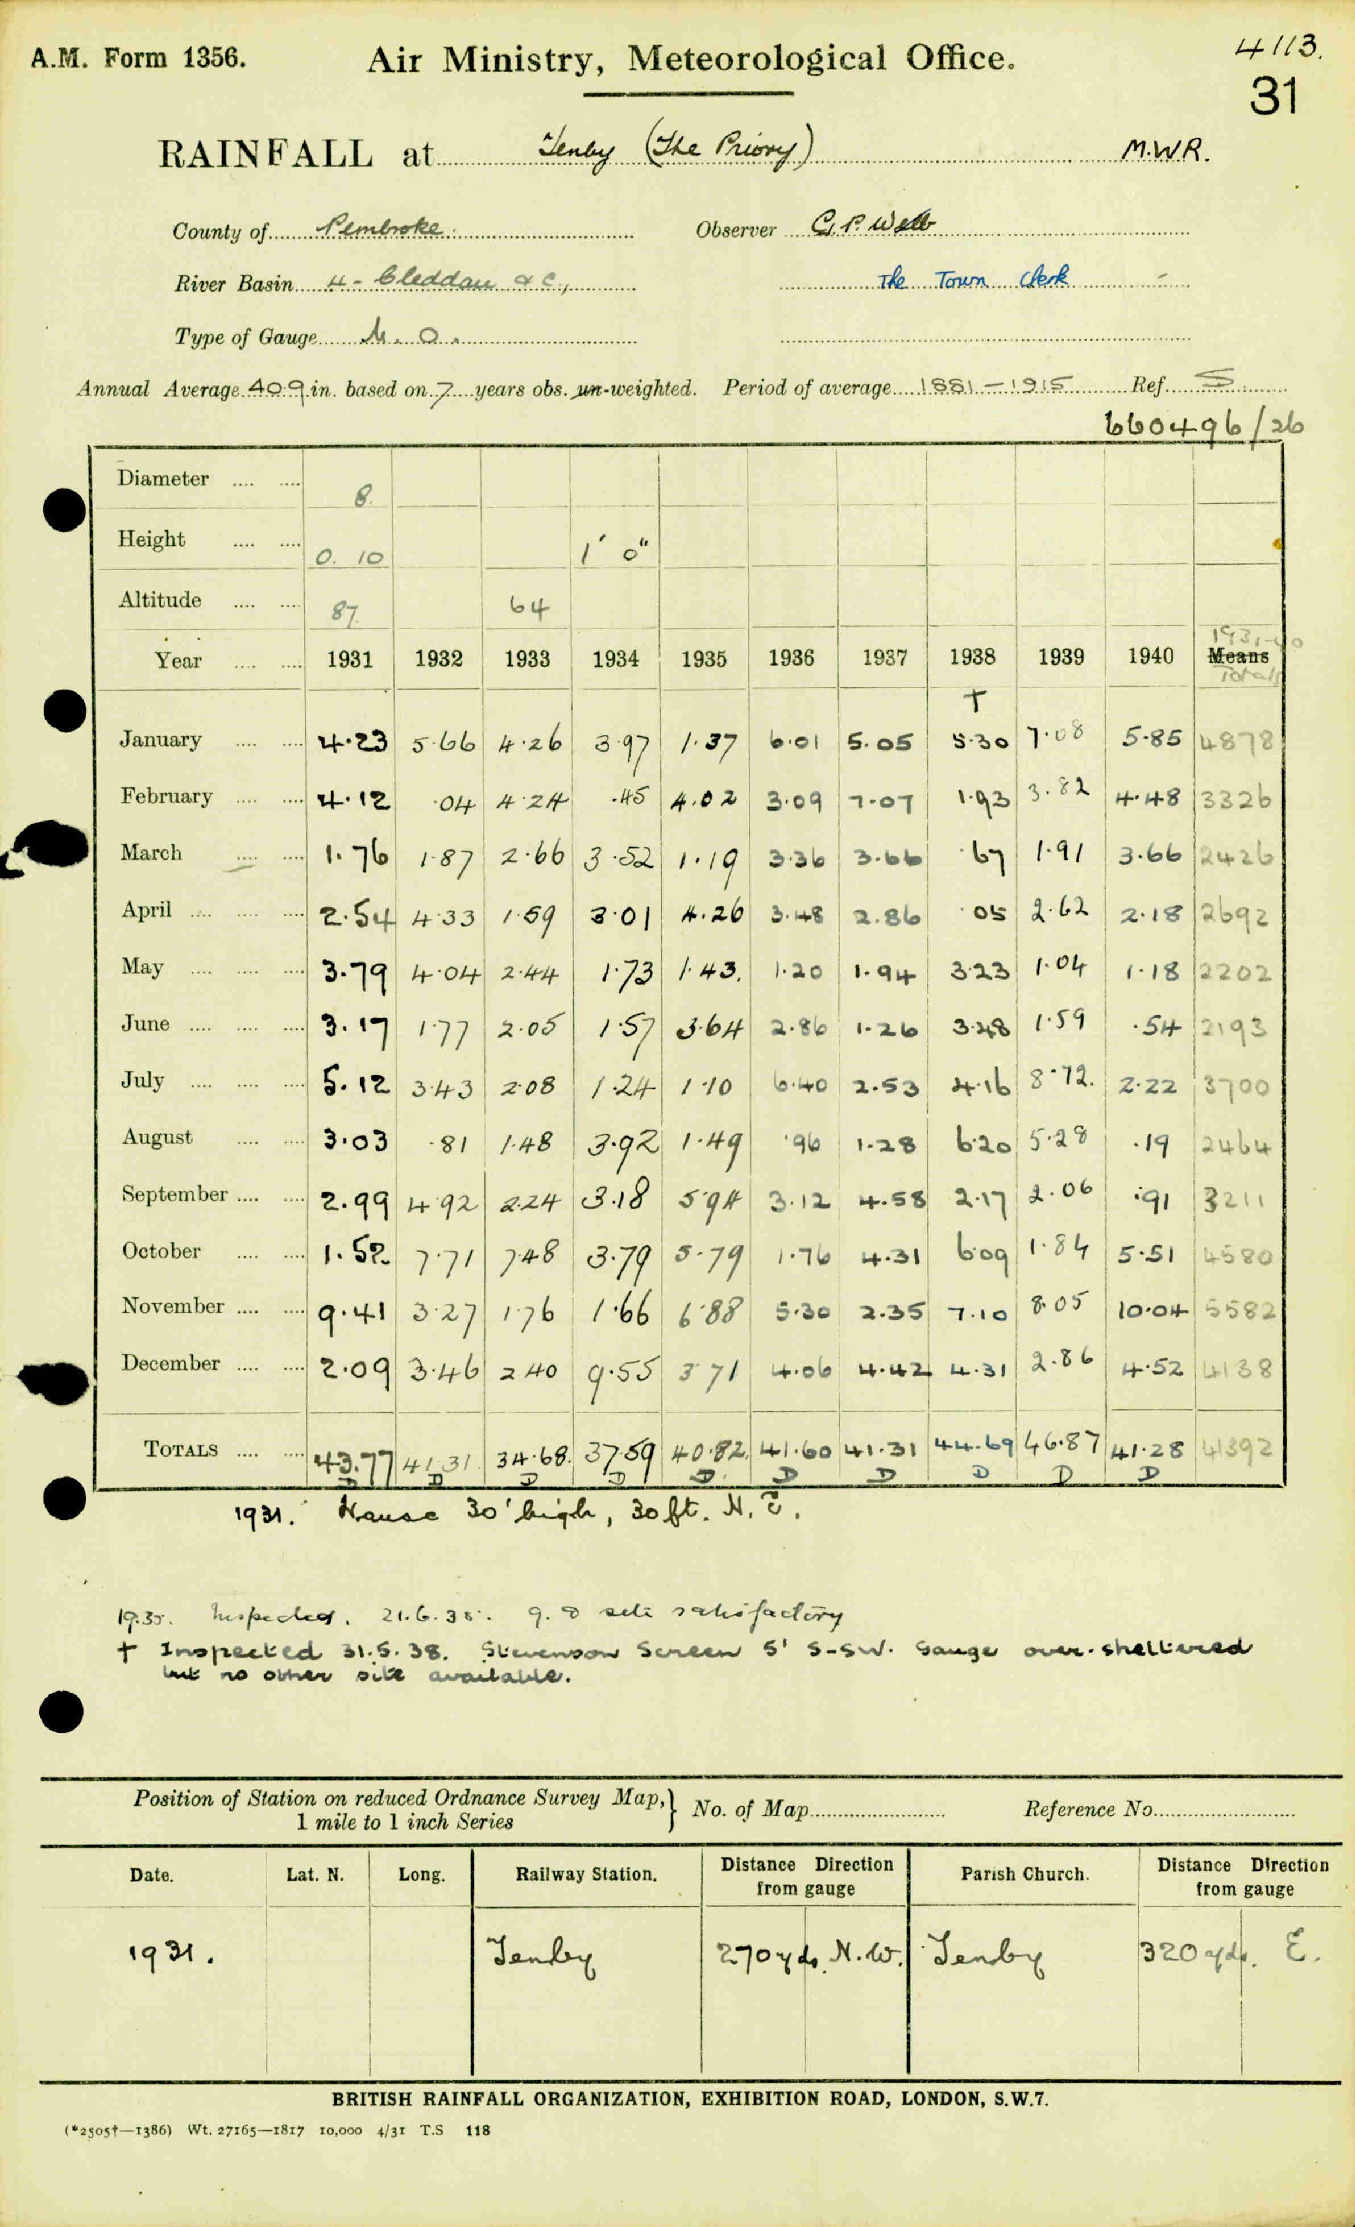 A.M. Form 1356. Air Ministry, Meteorological Office. 4113.
31
RAINFALL at Tenby (The Priory) M.W.R.
County of Pembroke. Observer G.P. Webb
River Basin 4 - Cleddau &c., The Town Clerk
Type of Gauge M.O.
Annual Average 40.9 in. based on 7 years obs. un-weighted. Period of average 1881-1915 Ref. S
660496/26
Diameter 8.
Height 0. 10 1' 0"
Altitude 87. 64
1931-40
Year 1931 1932 1933 1934 1935 1936 1937 1938 1939 1940 Means
Totals
†
January 4.23 5.66 4.26 3.97 1.37 6.01 5.05 5.30 7.08 5.85 4878
February 4.12 .04 4.24 .45 4.02 3.09 7.07 1.93 3.82 4.48 3326
March 1.76 1.87 2.66 3.52 1.19 3.36 3.66 .67 1.91 3.66 2426
April 2.54 4.33 1.59 3.01 4.26 3.48 2.86 .05 2.62 2.18 2692
May 3.79 4.04 2.44 1.73 1.43. 1.20 1.94 3.23 1.04 1.18 2202
June 3.17 1.77 2.05 1.57 3.64 2.86 1.26 3.48 1.59 .54 2193
July 5.12 3.43 2.08 1.24 1.10 6.40 2.53 4.16 8.72. 2.22 3700
August 3.03 .81 1.48 3.92 1.49 .96 1.28 6.20 5.28 .19 2464
September 2.99 4.92 2.24 3.18 5.94 3.12 4.58 2.17 2.06 .91 3211
October 1.52 7.71 7.48 3.79 5.79 1.76 4.31 6.09 1.84 5.51 4580
November 9.41 3.27 1.76 1.66 6.88 5.30 2.35 7.10 8.05 10.04 5582
December 2.09 3.46 2.40 9.55 3.71 4.06 4.42 4.31 2.86 4.52 4138
TOTALS 43.77 41.31. 34.68. 37.59 40.82. 41.60 41.31 44.69 46.87 41.28 41392
D D D D D D D D D D
1931. House 30' high, 30 ft. N.E.
1935. Inspected. 21.6.35. g. & site satisfactory
† Inspected 31.5.38. Stevenson Screen 5' S-SW. Gauge over-sheltered
but no other site available.
Position of Station on reduced Ordnance Survey Map, } No. of Map Reference No.
1 mile to 1 inch Series
Date. Lat. N. Long. Railway Station. Distance Direction from gauge Parish Church. Distance Direction from gauge
1931. Tenby 270 yds. N.W. Tenby 320 yds. E.
BRITISH RAINFALL ORGANIZATION, EXHIBITION ROAD, LONDON, S.W.7.
(*2505†—1386) Wt. 27165—1817 10,000 4/31 T.S 118